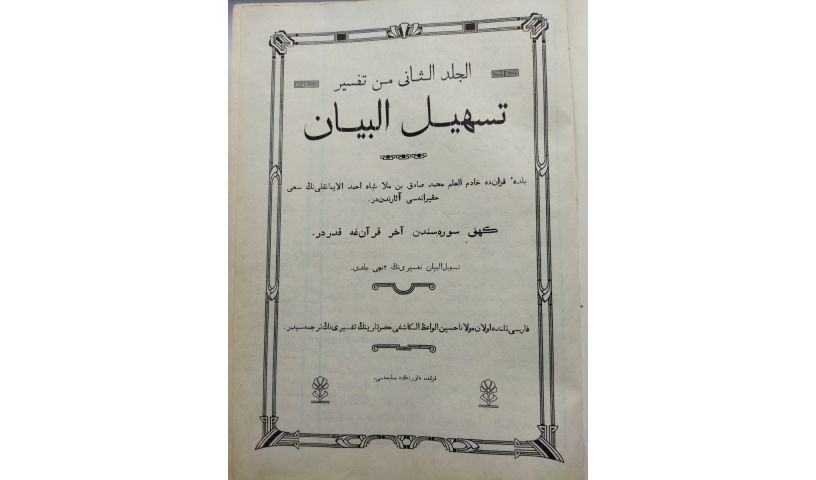 الجلد الثانى من تفسير
تسهيل البيان
بلدهٔ قزان‌ده خادم العلم محمد صادق بن ملا شاه احمد الايمانقلى‌نڭ سعى
حقيرانه‌سى آثارندن‌در.
كهف سوره‌سندن آخر قرآن‌غه قدردر.
تسهيل البيان تفسيرى‌نڭ ٢نچى جلدى.
فارسى تلنده اولان مولانا حسين الواعظ الكاشفى حضرتلرينڭ تفسيرى‌نڭ ترجمه‌سيدر.
قزانده مطبعه‌سى.